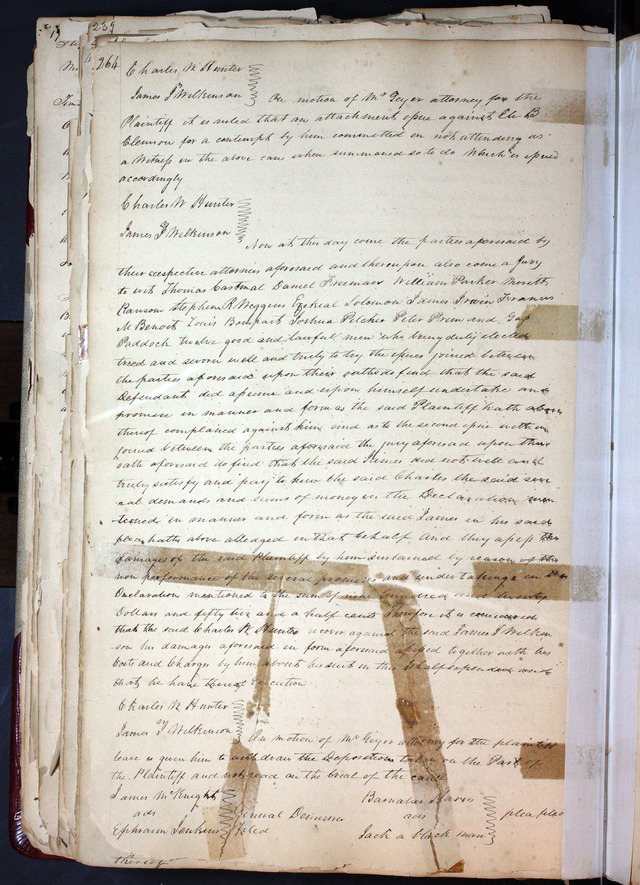 239
264
Charles W Hunter
James Y Wilkinson On motion of Mr Geyer attorney for the
Plaintiff it is ruled that an attachment issue against Eli B
Clemson for a contempt by him committed in not attending as
a Witness in the above case when summoned so to do Which is issued
accordingly
Charles W Hunter
James Y Wilkinson
Now at this day come the parties aforesaid by
their respective attornies aforesaid and thereupon also come a Jury
to wit Thomas Daniel Freeman William Parker
Ransom Stephen R Wiggins Ezekial Solomon James Irwin Francis
M Benoit Louis Bompart Joshua Pelcher Peter Primm and
Paddock twelve good and lawful men who being duly elected
tried and sworn well and truly to try the issues joined between
the parties aforesaid upon their oaths do find that the said
Defendant did assume and upon himself undertake and
promise in manner and form as the said Plaintiff hath above
thereof complained against him and as to the second issue within
joined between the parties aforesaid the jury aforesaid upon their
oath aforesaid do find that the said James did not well and
truly satisfy and pay to him the said Charles the said sev
ral demands and sums of money in the Declaration men
tioned in manner and form as the said James in his said
plea hath above alledged in that behalf And they assess the
damages of the said Plaintiff by him sustained by reason of the
non performance of the several promises and undertakings in the
Declaration mentioned to the sum of hundred and twenty
Dollars and fifty five and a half cents Therefore it is considered
that the said Charles W Hunter recover against the said James Y Wilkin
son his damages aforesaid in form aforesaid assessed together with his
Costs and Charges by him about his suit in this behalf expended and
that he have thereof Execution
Charles W Hunter
James Y Wilkinson On motion of Mr Geyer attorney for the plaintiff
leave is given him to withdraw the Deposition taken on the Part of
the Plaintiff and not read on the trial of the cause
James McKnight Barnabas Harris
ads General Demurrer ads plea filed
Ephraim Jenkins filed Jack a black man
thereof